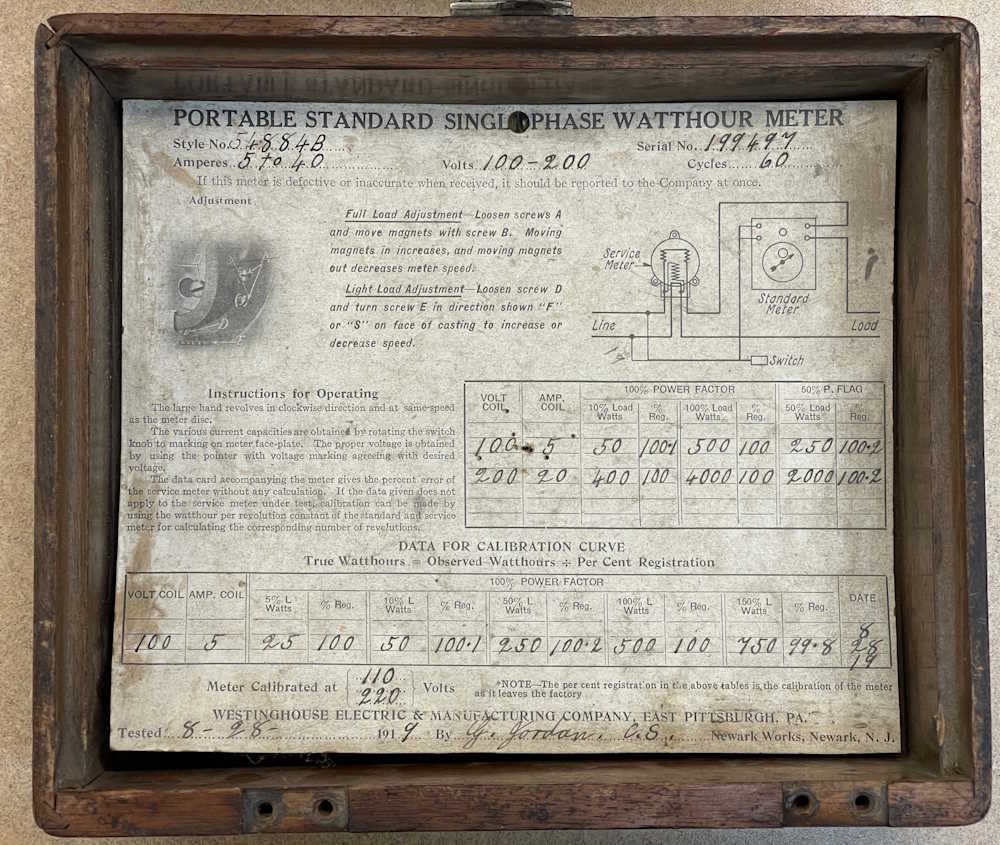 PORTABLE STANDARD SINGLE PHASE WATTHOUR METER
Style No. 54884B Serial No. 199497
Amperes 5 to 40 Volts 100-200 Cycles 60
If this meter is defective or inaccurate when received, it should be reported to the Company at once.
Adjustment
Full Load Adjustment—Loosen screws A
and move magnets with screw B. Moving
magnets in increases, and moving magnets
out decreases meter speed.
Light Load Adjustment—Loosen screw D
and turn screw E in direction shown "F"
or "S" on face of casting to increase or
decrease speed.
Service
Meter
Standard
Meter
Line
Load
Switch
Instructions for Operating
The large hand revolves in clockwise direction and at same speed
as the meter disc.
The various current capacities are obtained by rotating the switch
knob to marking on meter face-plate. The proper voltage is obtained
by using the pointer with voltage marking agreeing with desired
voltage.
The data card accompanying the meter gives the percent error of
the service meter without any calculation. If the data given does not
apply to the service meter under test, calibration can be made by
using the watthour per revolution constant of the standard and service
meter for calculating the corresponding number of revolutions.
VOLT COIL AMP. COIL 100% POWER FACTOR 50% P. F. LAG
10% Load Watts % Reg. 100% Load Watts % Reg. 50% Load Watts % Reg.
100 5 50 100.1 500 100 250 100.2
200 20 400 100 4000 100 2000 100.2
DATA FOR CALIBRATION CURVE
True Watthours = Observed Watthours ÷ Per Cent Registration
VOLT COIL AMP. COIL 100% POWER FACTOR DATE
5% L Watts % Reg. 10% L Watts % Reg. 50% L Watts % Reg. 100% L Watts % Reg. 150% L Watts % Reg.
100 5 25 100 50 100.1 250 100.2 500 100 750 99.8 8 28 19
Meter Calibrated at 110 220 Volts
*NOTE—The per cent registration in the above tables is the calibration of the meter
as it leaves the factory
WESTINGHOUSE ELECTRIC & MANUFACTURING COMPANY, EAST PITTSBURGH, PA.
Tested 8-28- 1919 By G. Jordan. C.S. Newark Works, Newark, N. J.